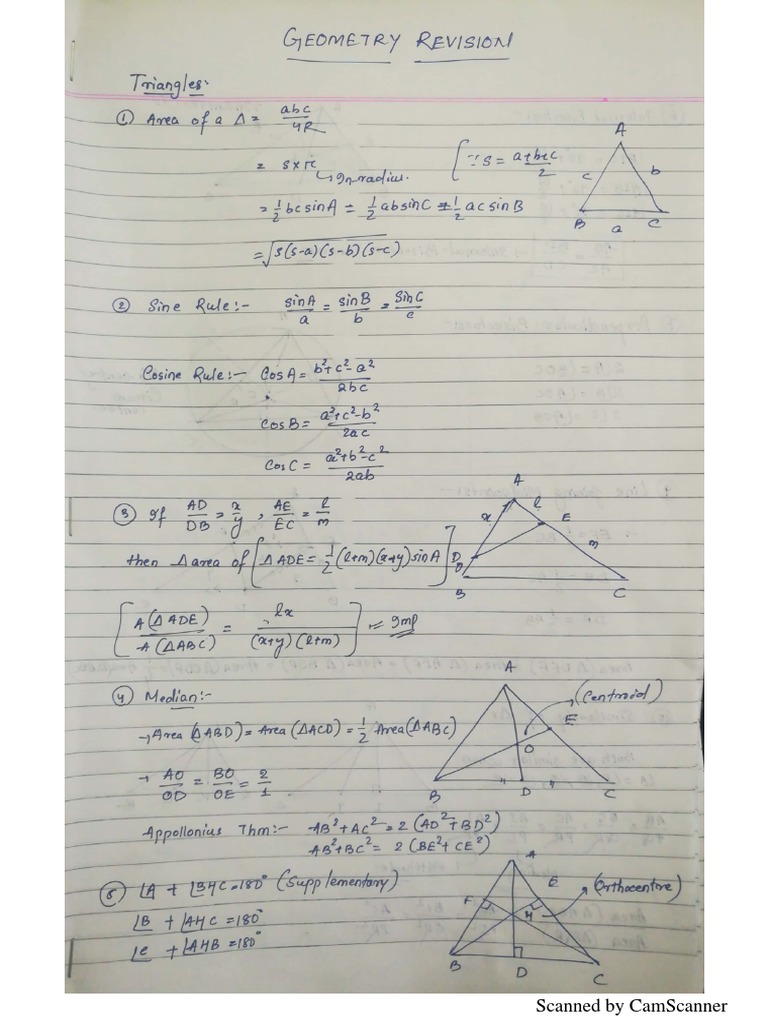 GEOMETRY REVISION
Triangles:
① Area of a Δ = abc/4R
= s×r ↳ In-radius. [∵ S = a+b+c/2
= 1/2 bc sinA = 1/2 ab sinC = 1/2 ac sinB
= √s(s-a)(s-b)(s-c)
A
c b
B a C
② Sine Rule:- sinA/a = sinB/b = SinC/c
Cosine Rule:- CosA = b²+c²-a²/2bc
CosB = a²+c²-b²/2ac
CosC = a²+b²-c²/2ab
③ If AD/DB = x/y , AE/EC = l/m
then Δ area of [ΔADE = 1/2 (l+m)(x+y) sinA]
[A(ΔADE)/A(ΔABC) = lx/(x+y)(l+m)] = Imp
A
x l E
D m
B C
④ Median:-
→ Area (ΔABD) = Area (ΔACD) = 1/2 Area (ΔABC)
→ AO/OD = BO/OE = 2/1
Appollonius Thm:- AB²+AC² = 2 (AD²+BD²)
AB²+BC² = 2 (BE²+CE²)
A
(Centroid)
E
O
B D C
⑤ ∠A + ∠BHC = 180° (Supplementary)
∠B + ∠AHC = 180°
∠C + ∠AHB = 180°
A
F E (Orthocentre)
H
B D C
Scanned by CamScanner